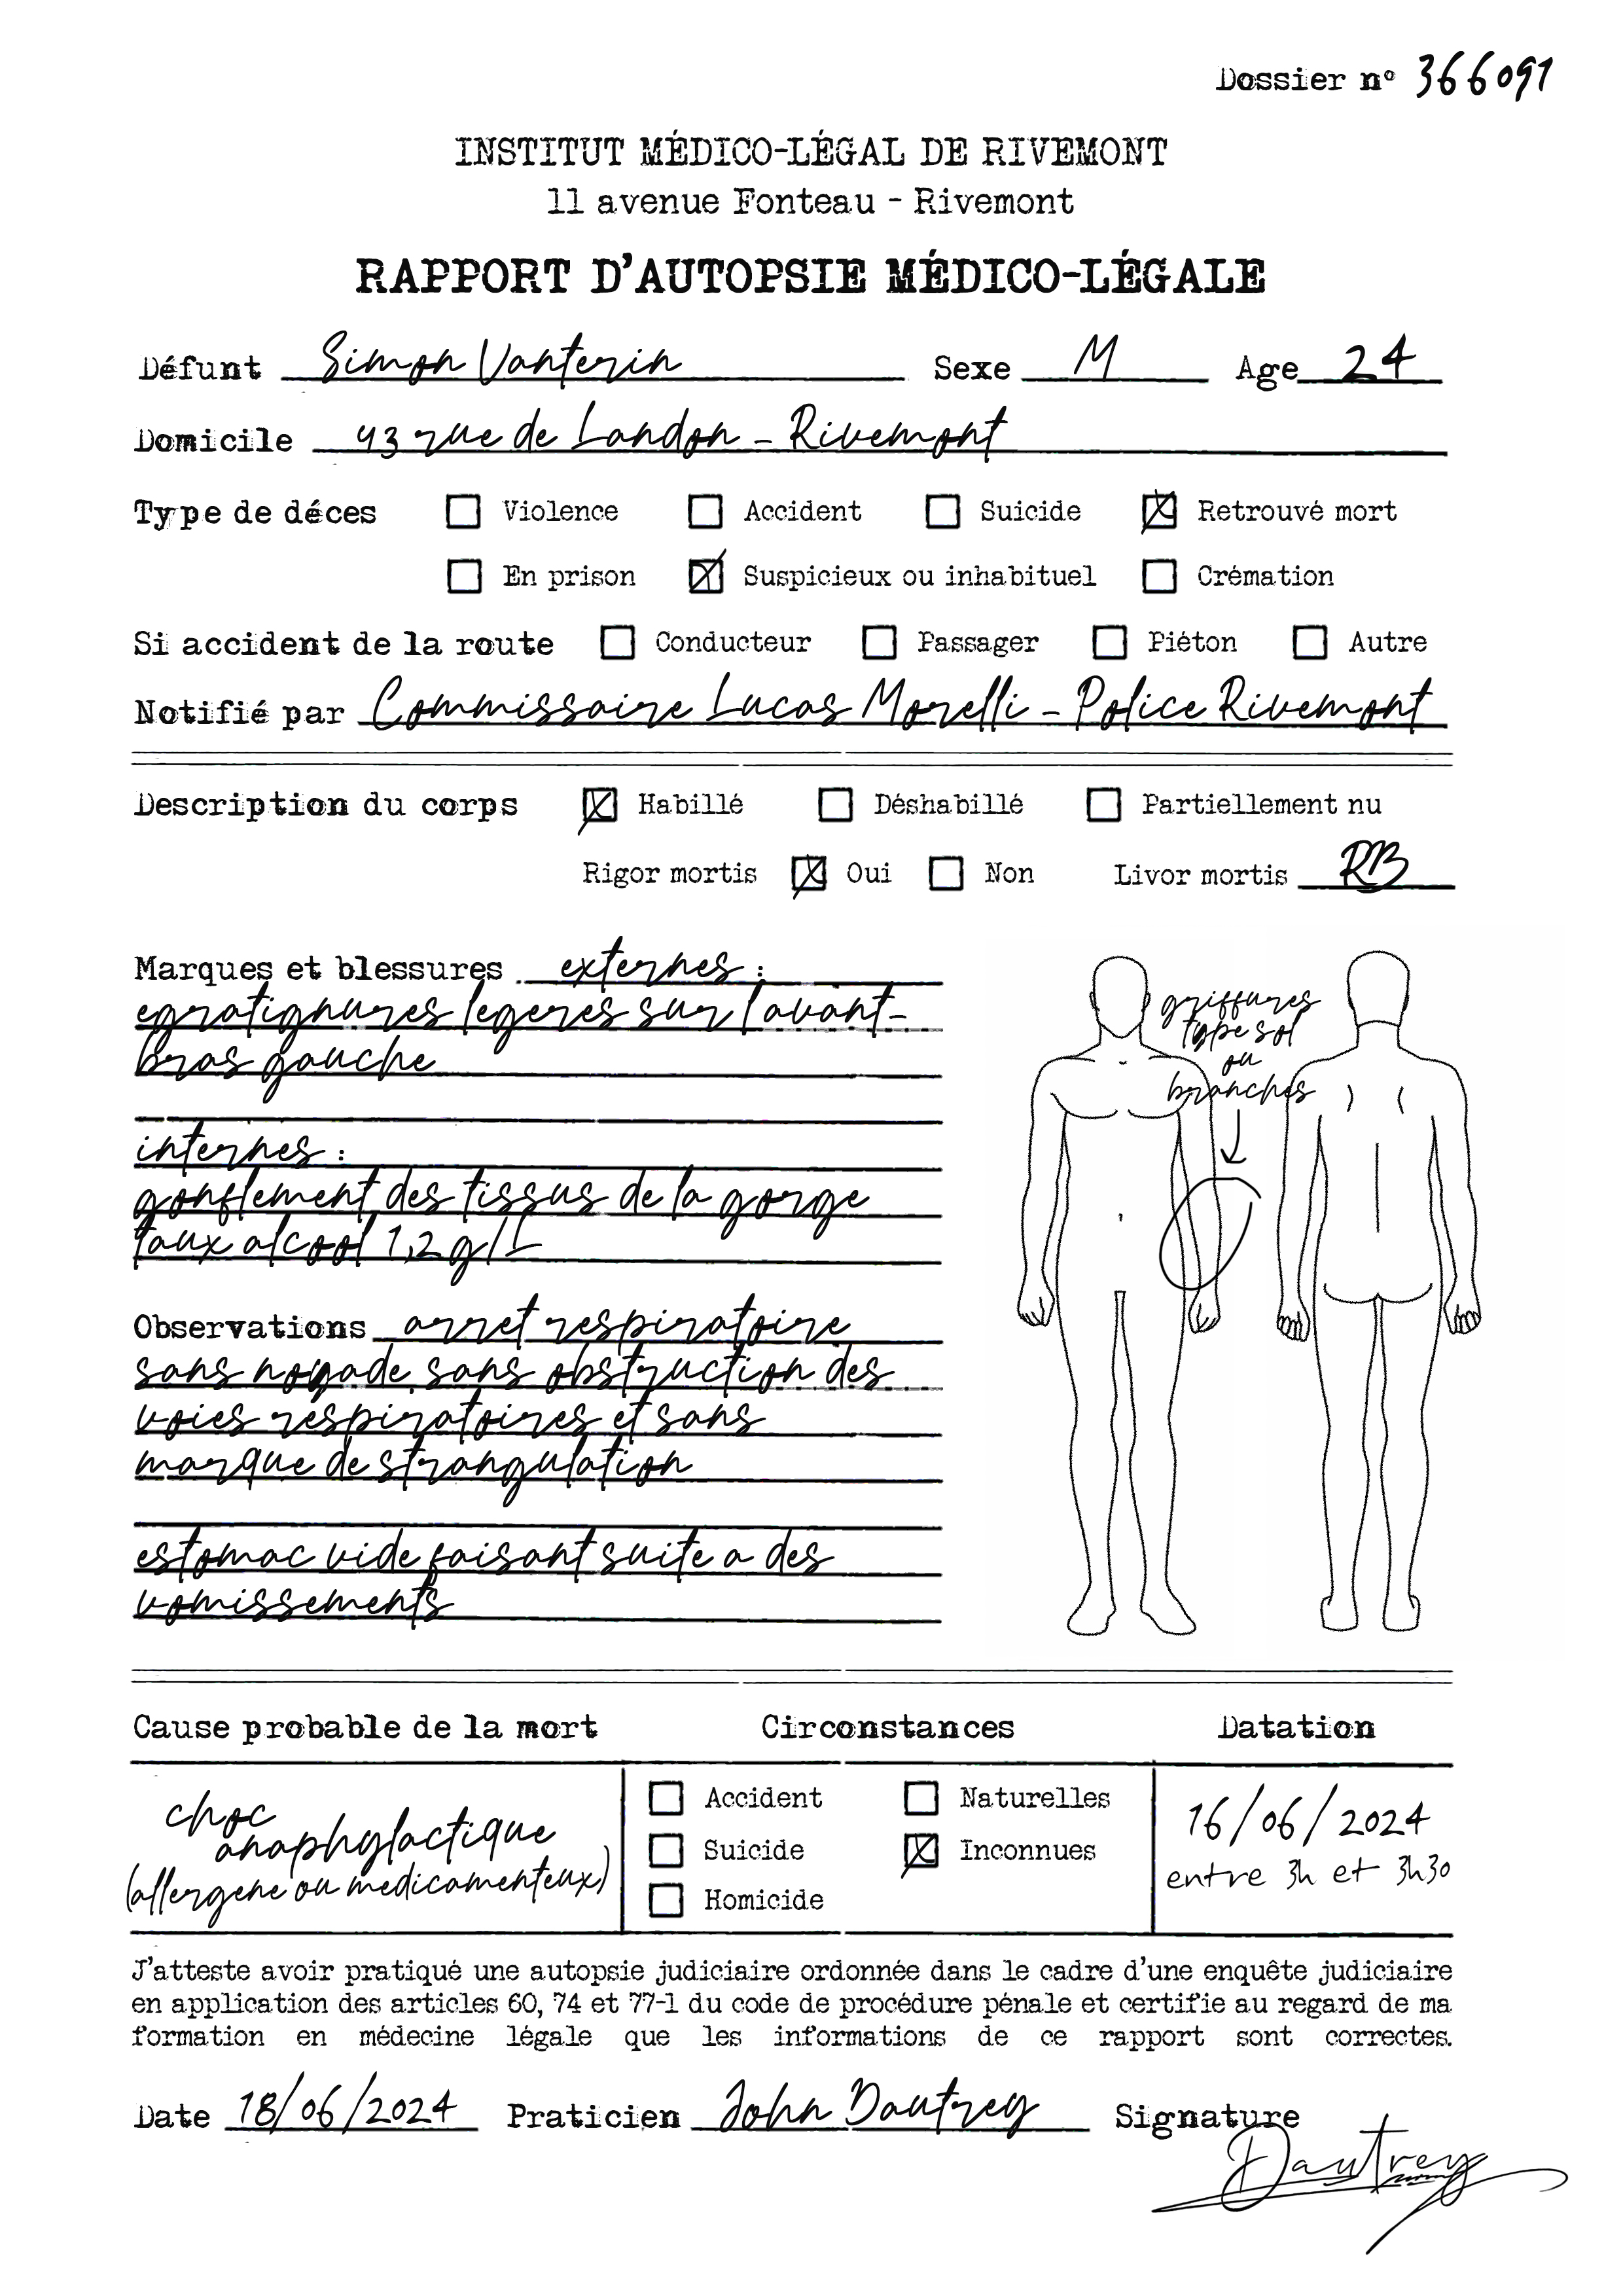 Dossier n° 366091
INSTITUT MÉDICO-LÉGAL DE RIVEMONT
11 avenue Fonteau - Rivemont
RAPPORT D'AUTOPSIE MÉDICO-LÉGALE
Défunt Simon Vanterin Sexe M Age 24
Domicile 43 rue de Landon - Rivemont
Type de déces Violence Accident Suicide Retrouvé mort
En prison Suspicieux ou inhabituel Crémation
Si accident de la route Conducteur Passager Piéton Autre
Notifié par Commissaire Lucas Morelli - Police Rivemont
Description du corps Habillé Déshabillé Partiellement nu
Rigor mortis Oui Non Livor mortis RB
Marques et blessures externes :
egratignures legeres sur l'avant-
bras gauche
internes :
gonflement des tissus de la gorge
taux alcool 1,2 g/L
Observations arret respiratoire
sans noyade, sans obstruction des
voies respiratoires et sans
marque de strangulation
estomac vide faisant suite a des
vomissements
griffures
type sol
ou
branches
Cause probable de la mort Circonstances Datation
choc
anaphylactique
(allergene ou medicamenteux)
Accident Naturelles
Suicide Inconnues
Homicide
16/06/2024
entre 3h et 3h30
J'atteste avoir pratiqué une autopsie judiciaire ordonnée dans le cadre d'une enquête judiciaire
en application des articles 60, 74 et 77-1 du code de procédure pénale et certifie au regard de ma
formation en médecine légale que les informations de ce rapport sont correctes.
Date 18/06/2024 Praticien John Dautrey Signature
Dautrey